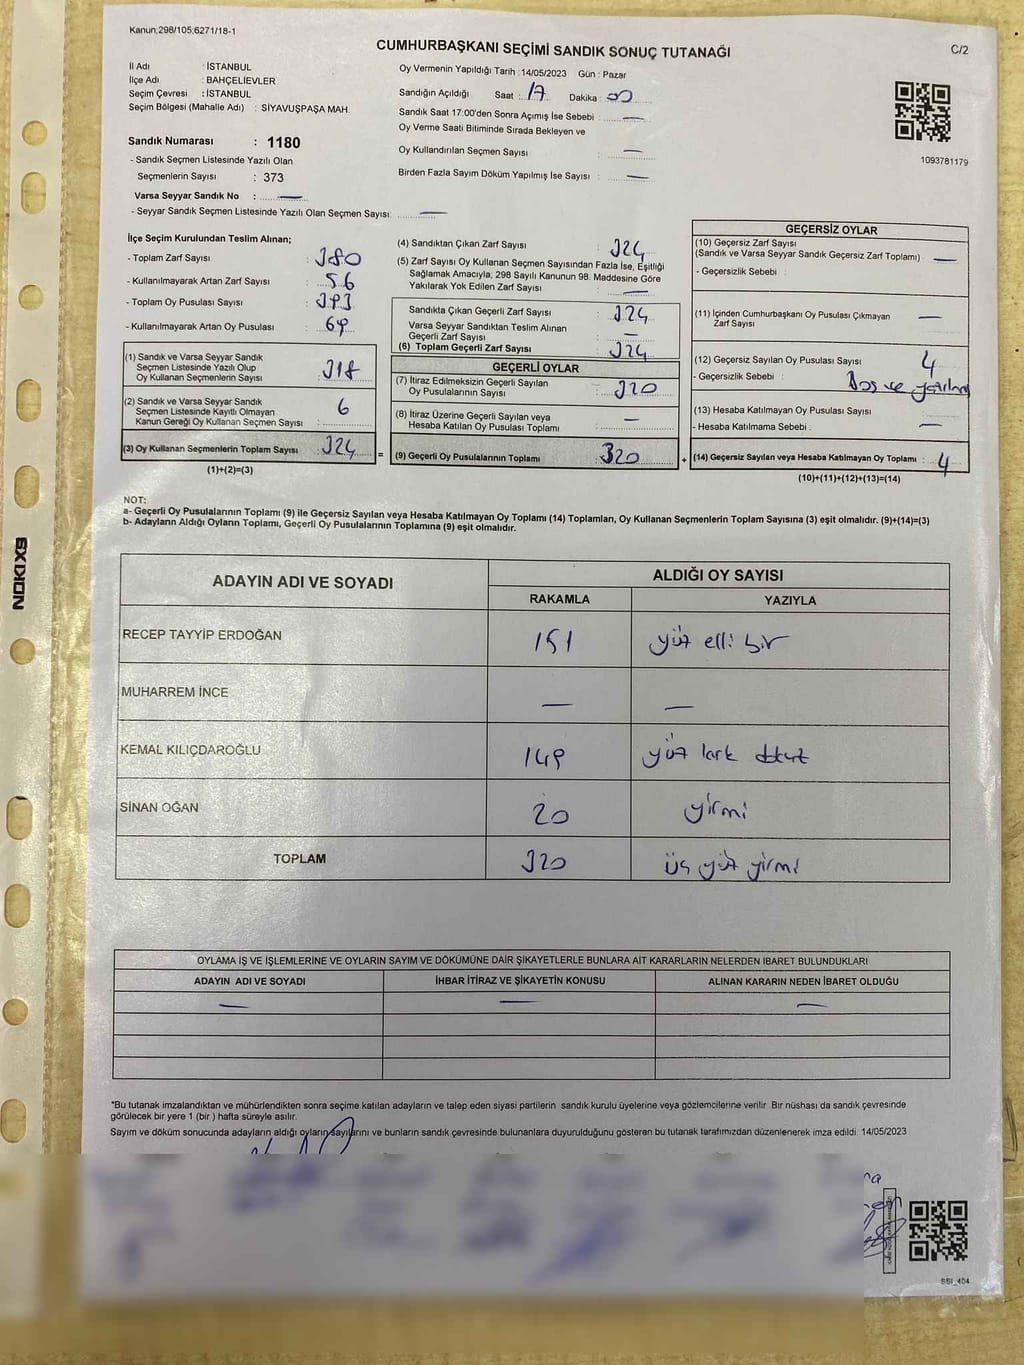 Kanun;298/105;6271/18-1
CUMHURBAŞKANI SEÇİMİ SANDIK SONUÇ TUTANAĞI
C/2
İl Adı : İSTANBUL
İlçe Adı : BAHÇELİEVLER
Seçim Çevresi : İSTANBUL
Seçim Bölgesi (Mahalle Adı) : SİYAVUŞPAŞA MAH.
Sandık Numarası : 1180
- Sandık Seçmen Listesinde Yazılı Olan
Seçmenlerin Sayısı : 373
Varsa Seyyar Sandık No : —
- Seyyar Sandık Seçmen Listesinde Yazılı Olan Seçmen Sayısı: —
Oy Vermenin Yapıldığı Tarih : 14/05/2023 Gün : Pazar
Sandığın Açıldığı Saat : 17 Dakika : 00
Sandık Saat 17:00'den Sonra Açımış İse Sebebi : —
Oy Verme Saati Bitiminde Sırada Bekleyen ve
Oy Kullandırılan Seçmen Sayısı : —
Birden Fazla Sayım Döküm Yapılmış İse Sayısı : —
1093781179
İlçe Seçim Kurulundan Teslim Alınan;
- Toplam Zarf Sayısı : 380
- Kullanılmayarak Artan Zarf Sayısı : 56
- Toplam Oy Pusulası Sayısı : 393
- Kullanılmayarak Artan Oy Pusulası : 69
(1) Sandık ve Varsa Seyyar Sandık
Seçmen Listesinde Yazılı Olup
Oy Kullanan Seçmenlerin Sayısı : 318
(2) Sandık ve Varsa Seyyar Sandık
Seçmen Listesinde Kayıtlı Olmayan
Kanun Gereği Oy Kullanan Seçmen Sayısı : 6
(3) Oy Kullanan Seçmenlerin Toplam Sayısı : 324
(1)+(2)=(3)
=
(4) Sandıktan Çıkan Zarf Sayısı : 324
(5) Zarf Sayısı Oy Kullanan Seçmen Sayısından Fazla İse, Eşitliği
Sağlamak Amacıyla; 298 Sayılı Kanunun 98. Maddesine Göre
Yakılarak Yok Edilen Zarf Sayısı : —
Sandıkta Çıkan Geçerli Zarf Sayısı : 324
Varsa Seyyar Sandıktan Teslim Alınan
Geçerli Zarf Sayısı : —
(6) Toplam Geçerli Zarf Sayısı : 324
GEÇERLİ OYLAR
(7) İtiraz Edilmeksizin Geçerli Sayılan
Oy Pusulalarının Sayısı : 320
(8) İtiraz Üzerine Geçerli Sayılan veya
Hesaba Katılan Oy Pusulası Toplamı : —
(9) Geçerli Oy Pusulalarının Toplamı : 320
+
GEÇERSİZ OYLAR
(10) Geçersiz Zarf Sayısı
(Sandık ve Varsa Seyyar Sandık Geçersiz Zarf Toplamı) : —
- Geçersizlik Sebebi :
(11) İçinden Cumhurbaşkanı Oy Pusulası Çıkmayan
Zarf Sayısı —
(12) Geçersiz Sayılan Oy Pusulası Sayısı : 4
- Geçersizlik Sebebi : Boş ve
(13) Hesaba Katılmayan Oy Pusulası Sayısı :
- Hesaba Katılmama Sebebi : —
(14) Geçersiz Sayılan veya Hesaba Katılmayan Oy Toplamı : 4
(10)+(11)+(12)+(13)=(14)
NOT:
a- Geçerli Oy Pusulalarının Toplamı (9) ile Geçersiz Sayılan veya Hesap Katılmayan Oy Toplamı (14) Toplamları, Oy Kullanan Seçmenlerin Toplam Sayısına (3) eşit olmalıdır. (9)+(14)=(3)
b- Adayların Aldığı Oyların Toplamı, Geçerli Oy Pusulalarının Toplamına (9) eşit olmalıdır.
ADAYIN ADI VE SOYADI
ALDIĞI OY SAYISI
RAKAMLA YAZIYLA
RECEP TAYYİP ERDOĞAN 151 yüz elli bir
MUHARREM İNCE — —
KEMAL KILIÇDAROĞLU 149 yüz kırk dokuz
SİNAN OĞAN 20 yirmi
TOPLAM 320 üç yüz yirmi
OYLAMA İŞ VE İŞLEMLERİNE VE OYLARIN SAYIM VE DÖKÜMÜNE DAİR ŞİKAYETLERLE BUNLARA AİT KARARLARIN NELERDEN İBARET BULUNDUKLARI
ADAYIN ADI VE SOYADI İHBAR İTİRAZ VE ŞİKAYETİN KONUSU ALINAN KARARIN NEDEN İBARET OLDUĞU
— — —
*Bu tutanak imzalandıktan ve mühürlendikten sonra seçime katılan adayların ve talep eden siyasi partilerin sandık kurulu üyelerine veya gözlemcilerine verilir. Bir nüshası da sandık çevresinde
görülecek bir yere 1 (bir) hafta süreyle asılır.
Sayım ve döküm sonucunda adayların aldığı oyların sayılarını ve bunların sandık çevresinde bulunanlara duyurulduğunu gösteren bu tutanak tarafımızdan düzenlenerek imza edildi. 14/05/2023
NOKIXS